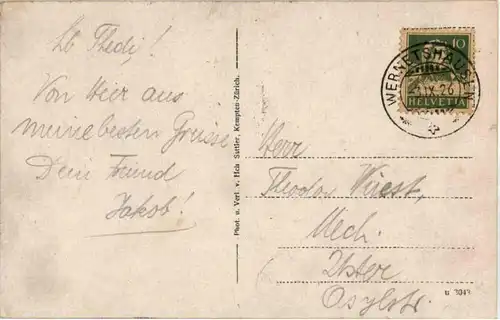 Lb Thedi!
Von Hier aus
meine besten Grüsse
Dein Freund
Jakob!
Phot. u. Verl. v. Hch Suttler, Kempten-Zürich.
10
HELVETIA
WERNETSHAUSEN
IX. 26
Herr
Theodor Wüest,
Mech.
Uster
Asylstr.
u 3043